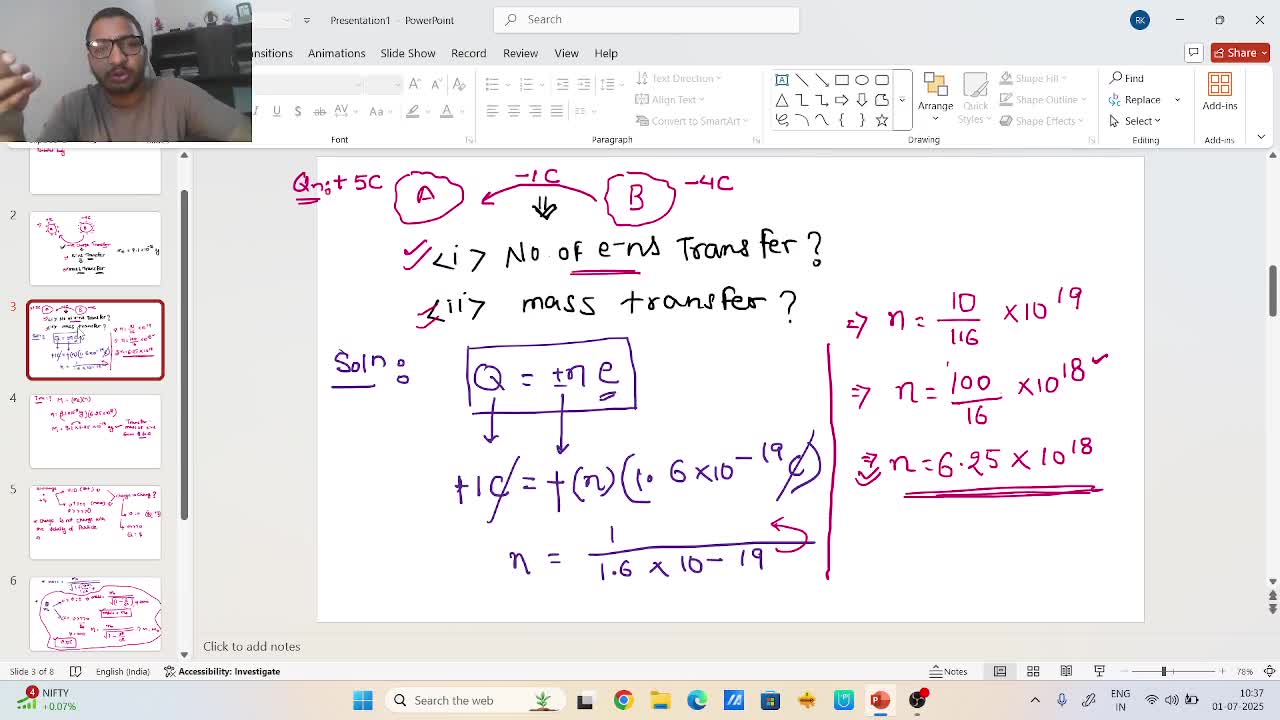 Presentation1 - PowerPoint
Search
RK
nsitions Animations Slide Show Record Review View Help
Share
Text Direction
Align Text
Convert to SmartArt
Arrange
Quick Styles
Shape Fill
Shape Outline
Shape Effects
Find
Replace
Select
Add-ins
Font Paragraph Drawing Add-ins
Qn: +5C A -1C B -4C
<i> No. of e-ns Transfer?
<ii> mass transfer?
Soln:
Q = ±n e
+1C = +(n)(1.6 × 10-19 C)
n = 1 / 1.6 × 10-19
=> n = 10 / 1.6 × 10 19
=> n = 100 / 16 × 10 18
=> n = 6.25 × 10 18
2
3
4
5
6
Click to add notes
Slide 3 of 8 English (India) Accessibility: Investigate
Notes
78%
4 NIFTY
+0.07%
Search the web
ENG
IN
10:37
01-07-2025